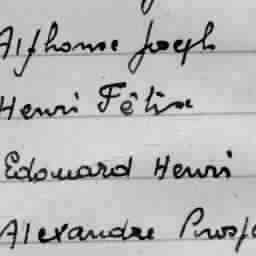 Alphonse Joseph
Henri Félix
Edouard Henri
Alexandre Prosp